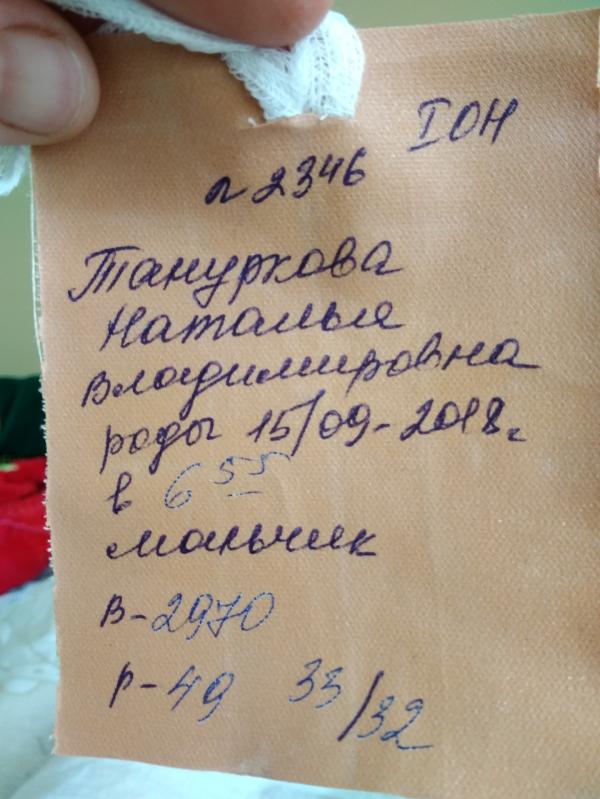 IОН
л 2346
Тануркова
Наталья
Владимировна
роды 15/09-2018г
в 6 55
мальчик
в-2970
р-49 33/32